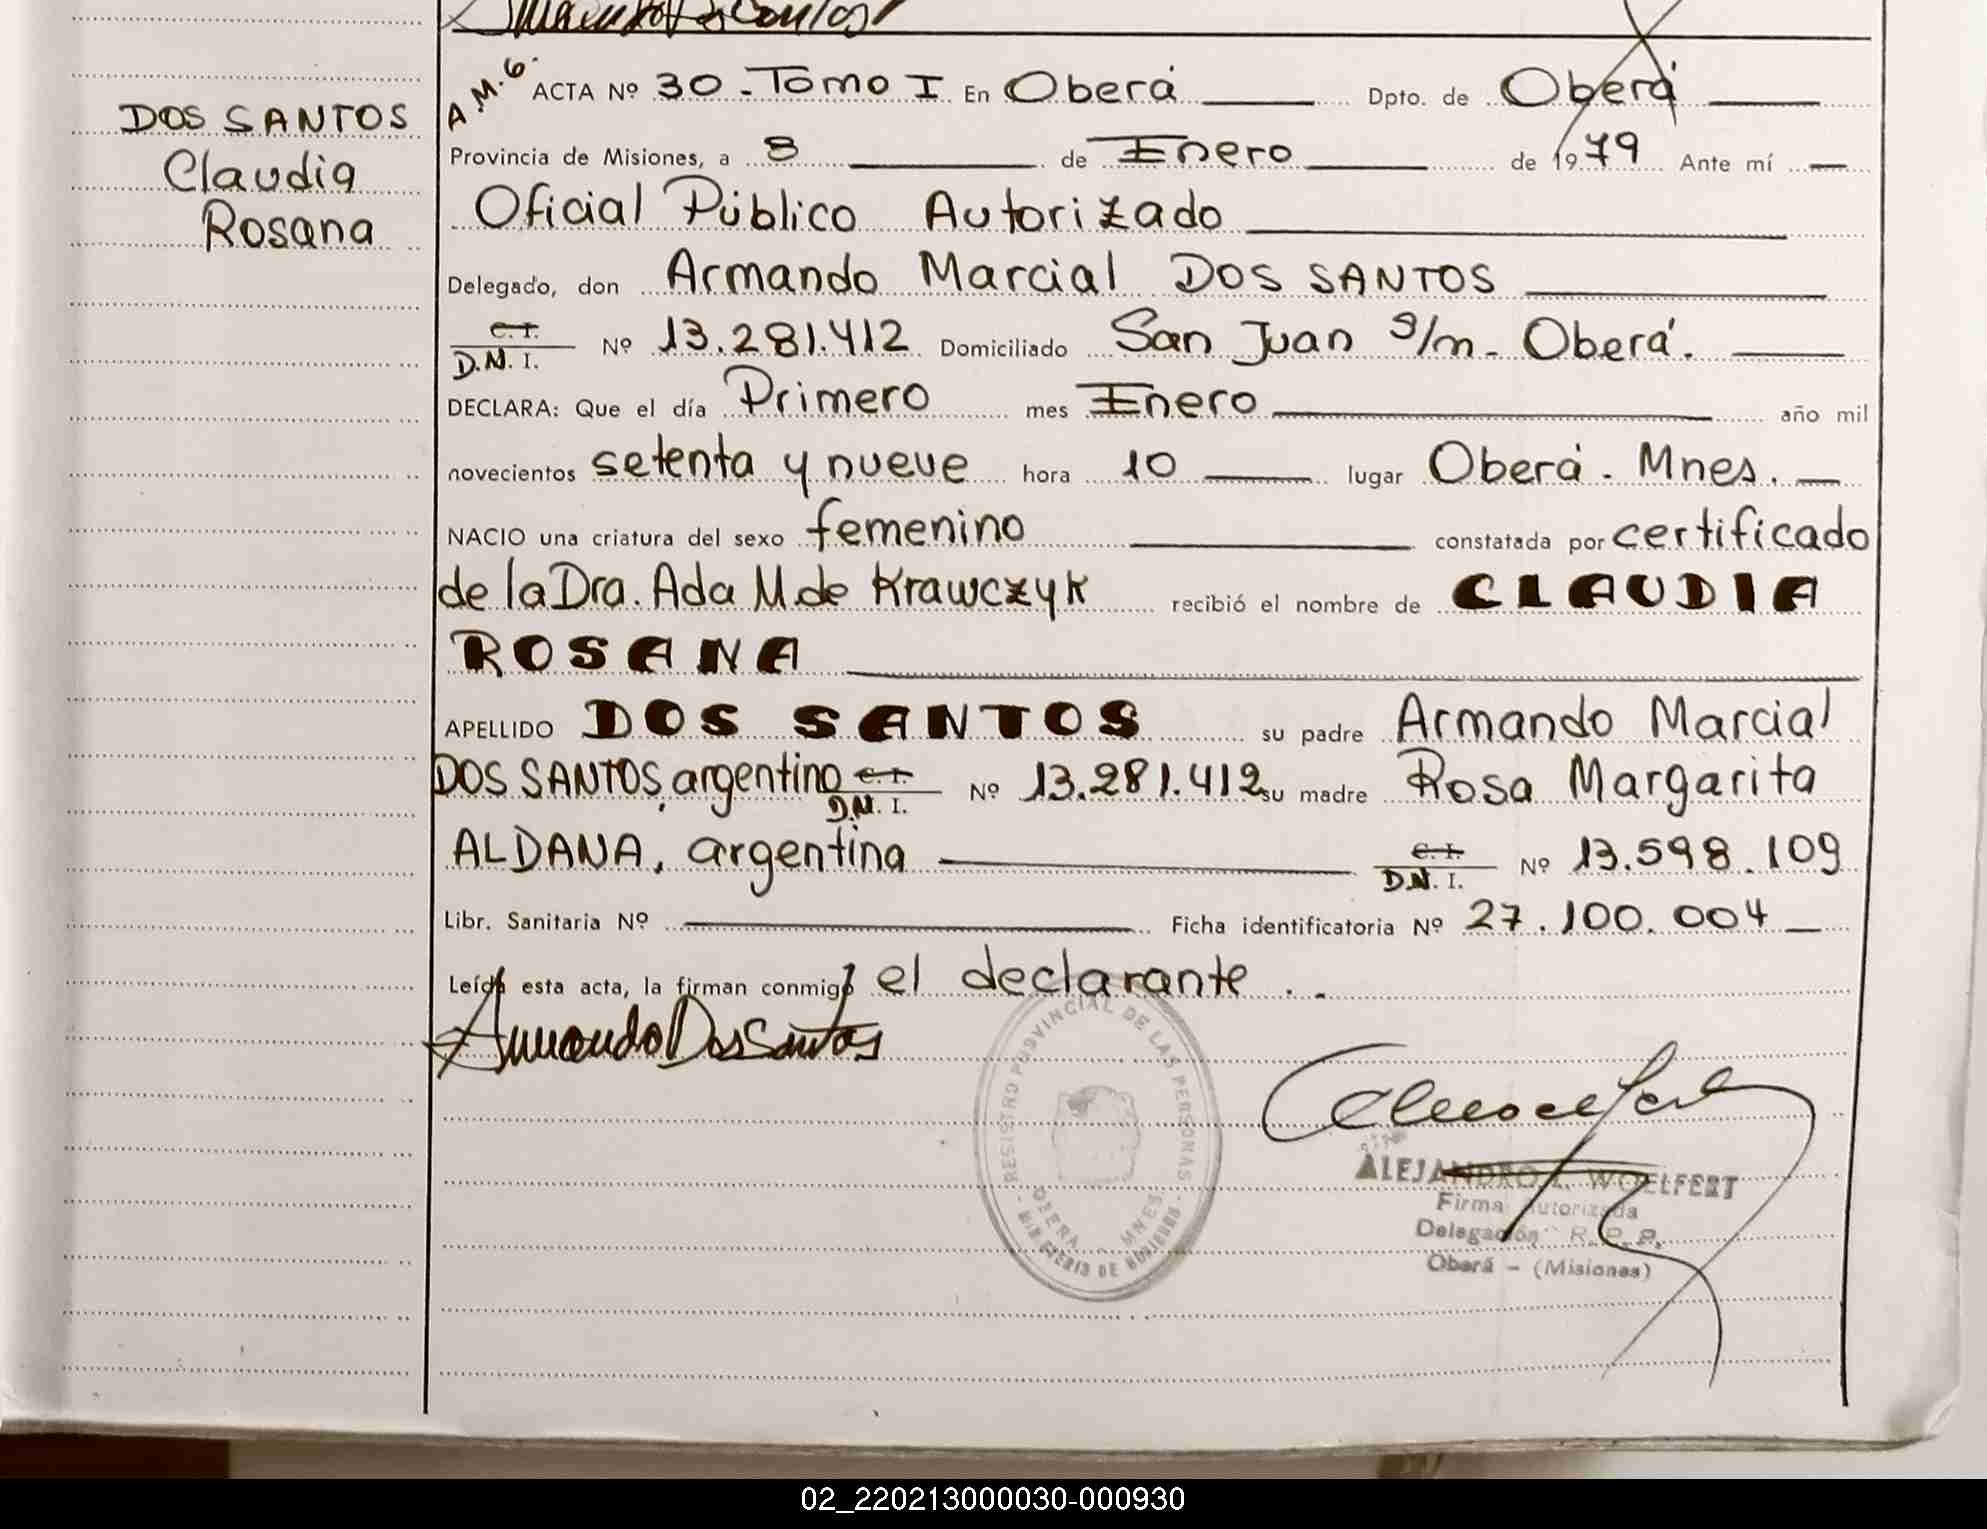 A.M.G. ACTA Nº 30 - Tomo I En Oberá Dpto. de Oberá
DOS SANTOS
Claudia
Rosana
Provincia de Misiones, a 8 de Enero de 1979 Ante mí
Oficial Público Autorizado
Delegado, don Armando Marcial DOS SANTOS
C.I.
D.N.I. Nº 13.281.412 Domiciliado San Juan s/m - Oberá.
DECLARA: Que el día Primero mes Enero año mil
novecientos setenta y nueve hora 10 lugar Oberá. Mnes.
NACIO una criatura del sexo femenino constatada por certificado
de la Dra. Ada M. de Krawczyk recibió el nombre de CLAUDIA
ROSANA
APELLIDO DOS SANTOS su padre Armando Marcial
DOS SANTOS, argentino C.I.
D.N.I. Nº 13.281.412 su madre Rosa Margarita
ALDANA, argentina C.I.
D.N.I. Nº 13.598.109
Libr. Sanitaria Nº Ficha identificatoria Nº 27.100.004
Leída esta acta, la firman conmigo el declarante..
Armando Dos Santos
REGISTRO PROVINCIAL DE LAS PERSONAS
OBERA - MNES.
MINISTERIO DE GOBIERNO
ALEJANDRO WOELFERT
Firma Autorizada
Delegación R.P.P.
Oberá - (Misiones)
02_220213000030-000930